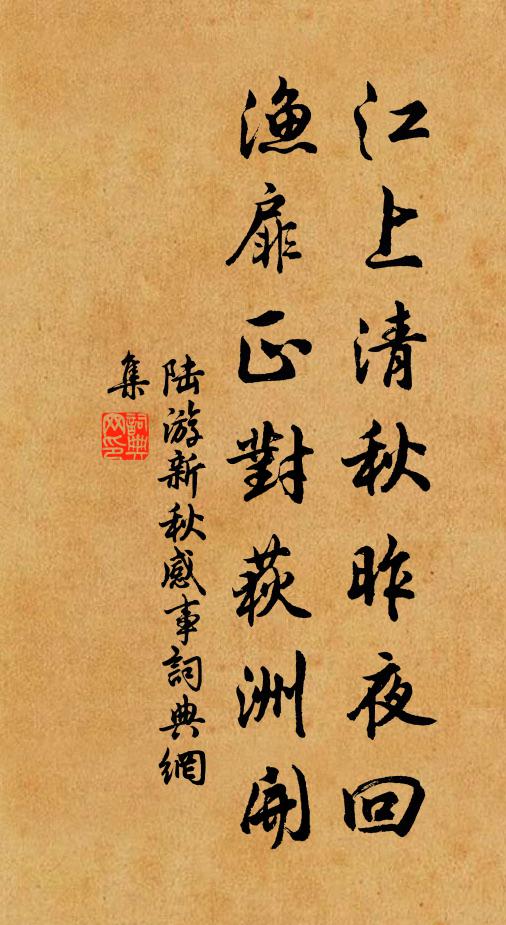 江上清秋昨夜回
漁扉正對荻洲開
陆游新秋感事詞典網
集
詞典网印